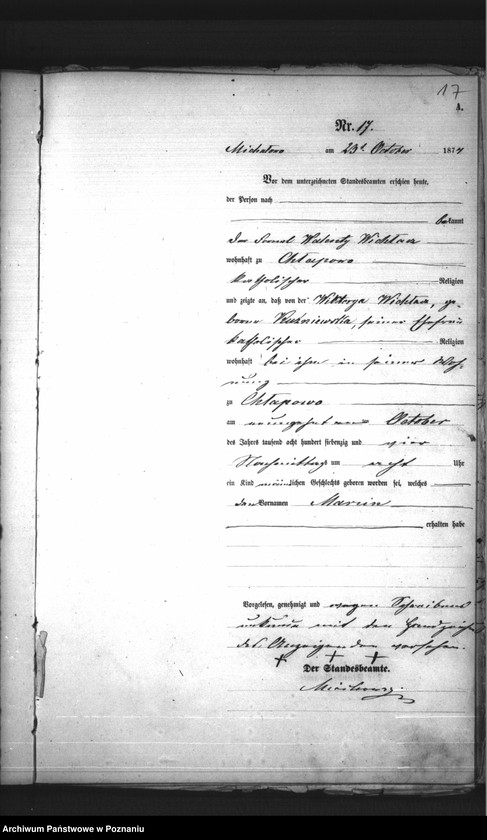 17
A.
Nr. 17.
Michalowo am 23t October 1874
Vor dem unterzeichneten Standesbeamten erschien heute,
der Person nach
bekannt
der Fornal Walenty Wichlacz
wohnhaft zu Chłapowo
katholischer Religion
und zeigte an, daß von der Wiktorya Wichlacz, ge-
borene Kuźniewska, seiner Ehefrau
katholischer Religion
wohnhaft bei ihm in seiner Woh-
nung
zu Chłapowo
am neunzehnten October
des Jahres tausend acht hundert siebenzig und vier
Nachmittags um acht Uhr
ein Kind männlichen Geschlechts geboren worden sei, welches
den Vornamen Marcin
erhalten habe
Vorgelesen, genehmigt und wegen Schreibens
unkunde mit den Handzeichen
des Anzeigenden versehen.
+ + +
Der Standesbeamte.
Archiwum Państwowe w Poznaniu